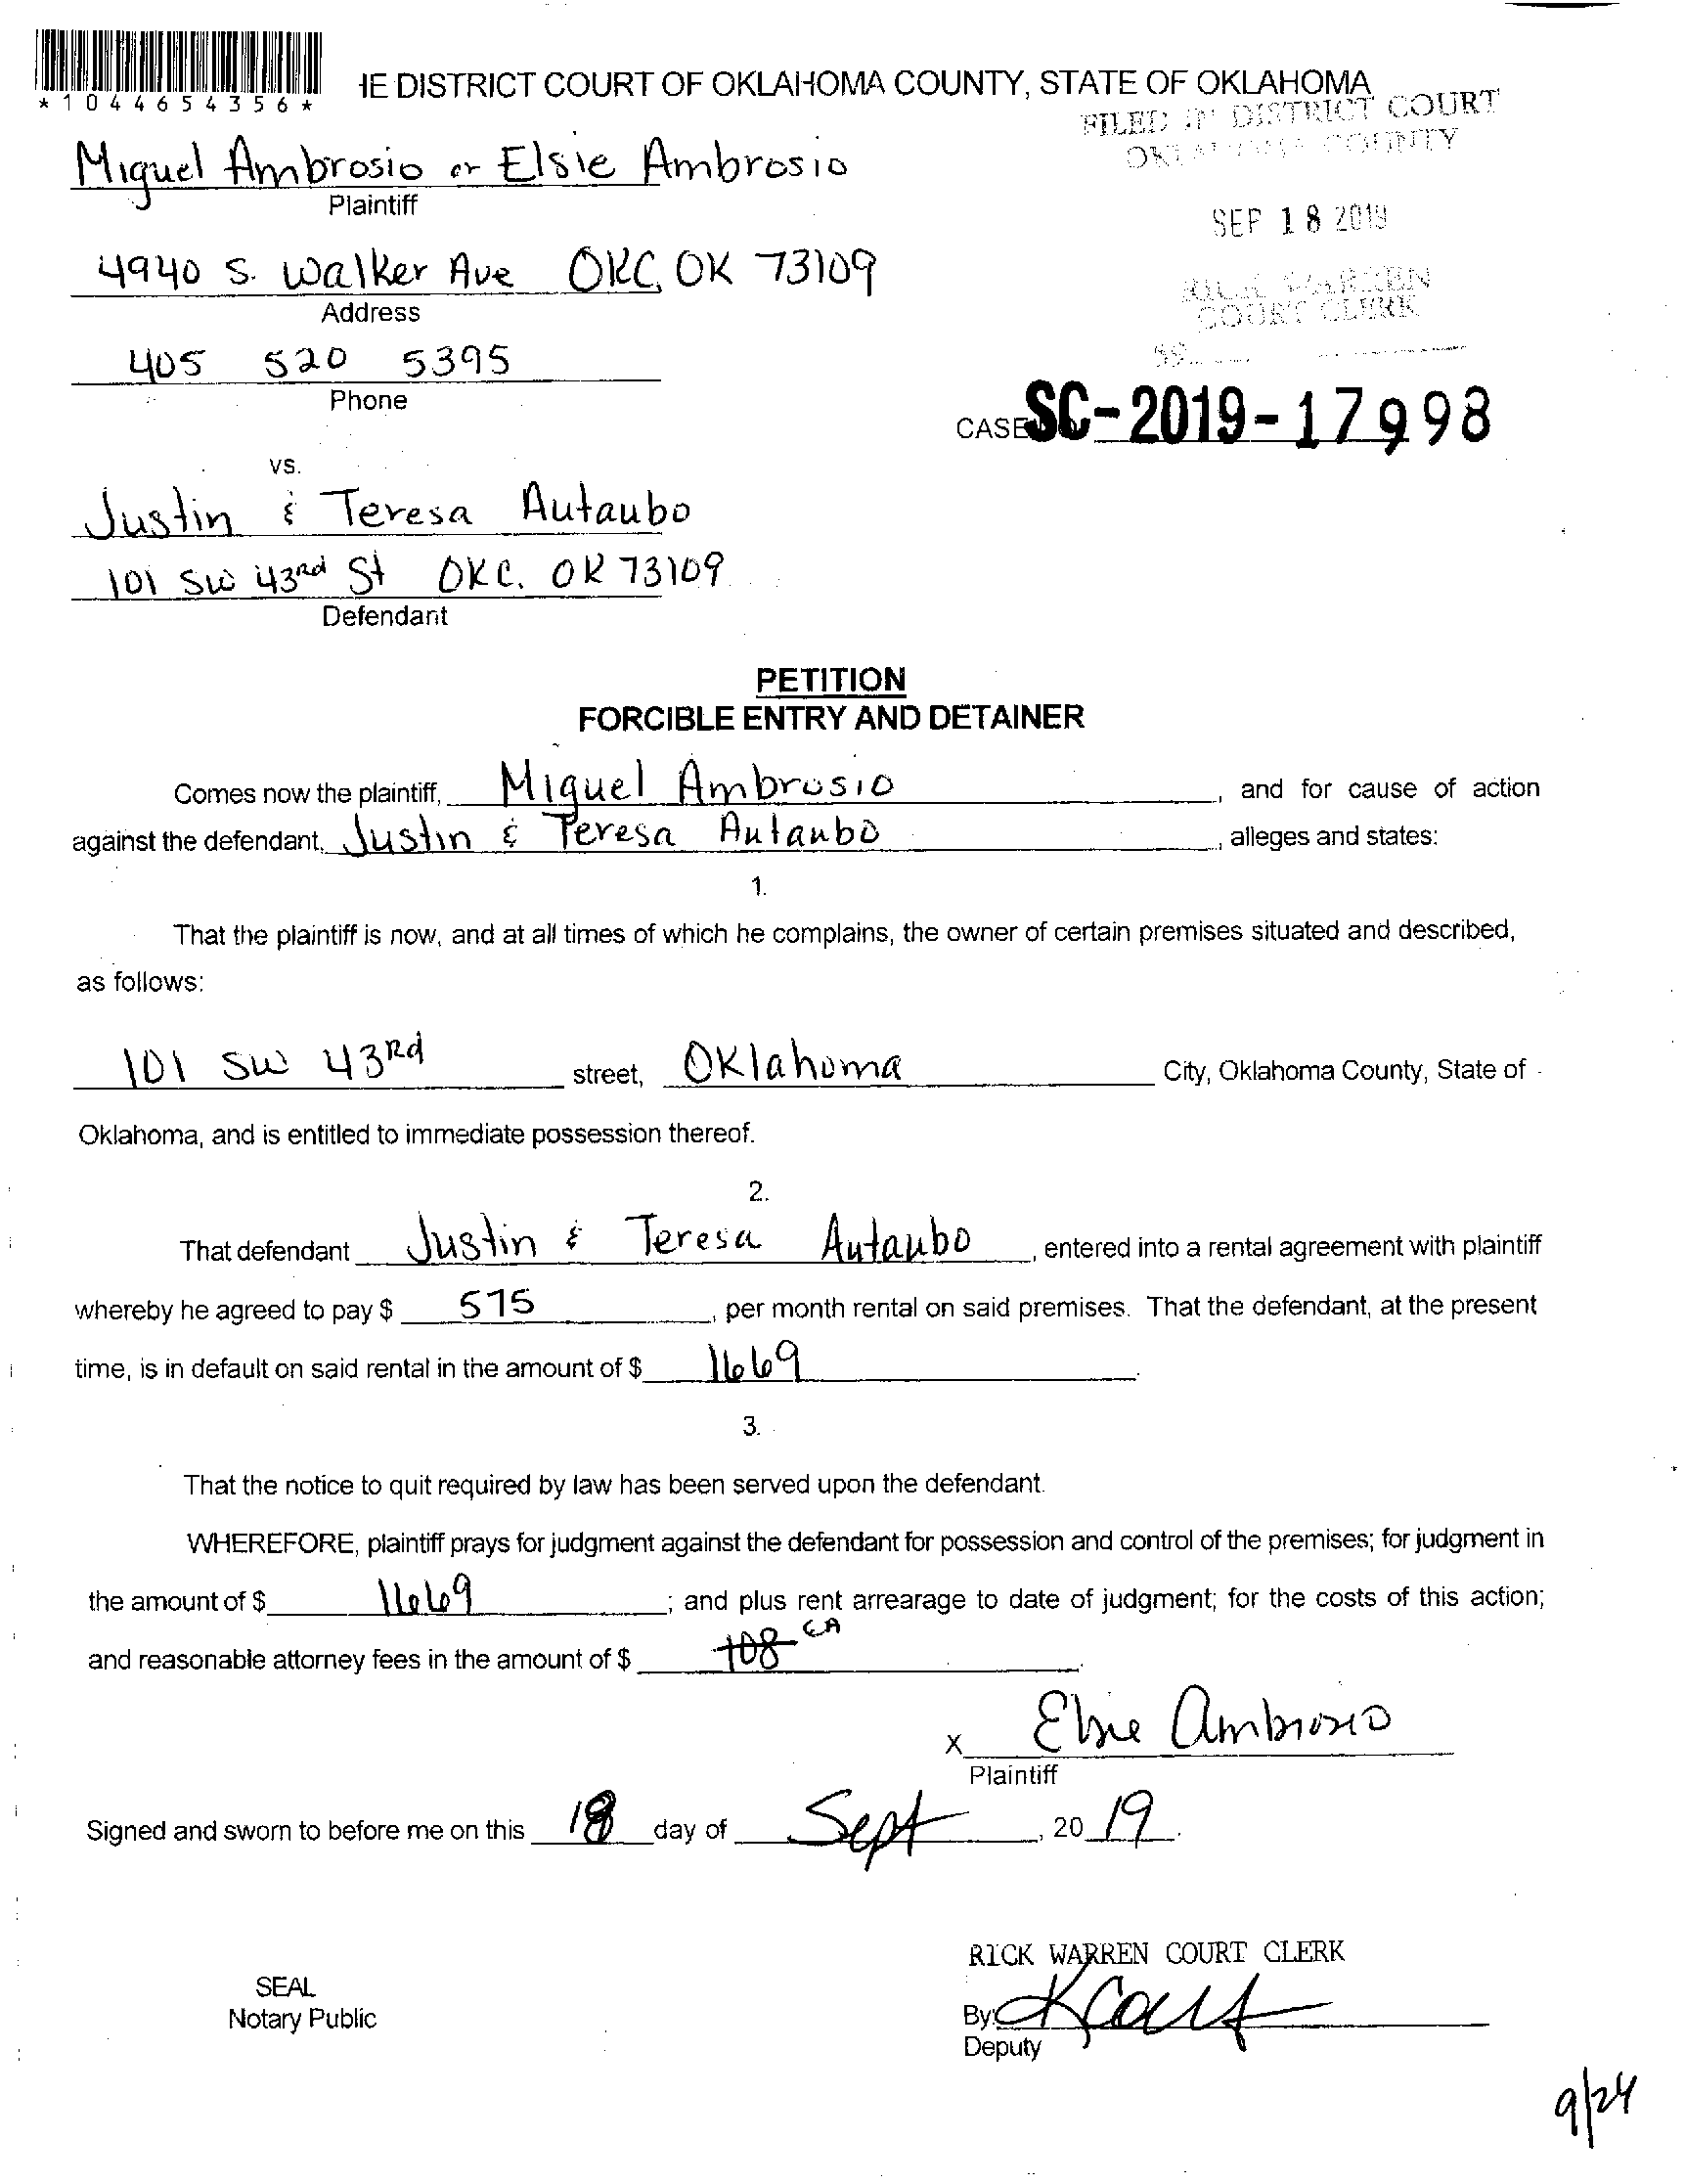 *1044654356*
IE DISTRICT COURT OF OKLAHOMA COUNTY, STATE OF OKLAHOMA
FILED IN DISTRICT COURT
OKLAHOMA COUNTY
Miguel Ambrosio or Elsie Ambrosio
Plaintiff
SEP 18 2019
4940 S. Walker Ave OKC, OK 73109
Address
RICK WARREN
COURT CLERK
405 520 5395
Phone
CASE SC-2019-17998
vs.
Justin & Teresa Autaubo
101 SW 43rd St OKC. OK 73109
Defendant
PETITION
FORCIBLE ENTRY AND DETAINER
Comes now the plaintiff, Miguel Ambrosio, and for cause of action
against the defendant, Justin & Teresa Autaubo, alleges and states:
1.
That the plaintiff is now, and at all times of which he complains, the owner of certain premises situated and described,
as follows:
101 SW 43Rd street, Oklahoma City, Oklahoma County, State of
Oklahoma, and is entitled to immediate possession thereof.
2.
That defendant Justin & Teresa Autaubo, entered into a rental agreement with plaintiff
whereby he agreed to pay $ 575, per month rental on said premises. That the defendant, at the present
time, is in default on said rental in the amount of $ 1669.
3.
That the notice to quit required by law has been served upon the defendant.
WHEREFORE, plaintiff prays for judgment against the defendant for possession and control of the premises; for judgment in
the amount of $ 1669; and plus rent arrearage to date of judgment; for the costs of this action;
and reasonable attorney fees in the amount of $ 108 EA.
x Elsie Ambrosio
Plaintiff
Signed and sworn to before me on this 18 day of Sept, 20 19.
RICK WARREN COURT CLERK
SEAL
Notary Public
By:
Deputy
9/24